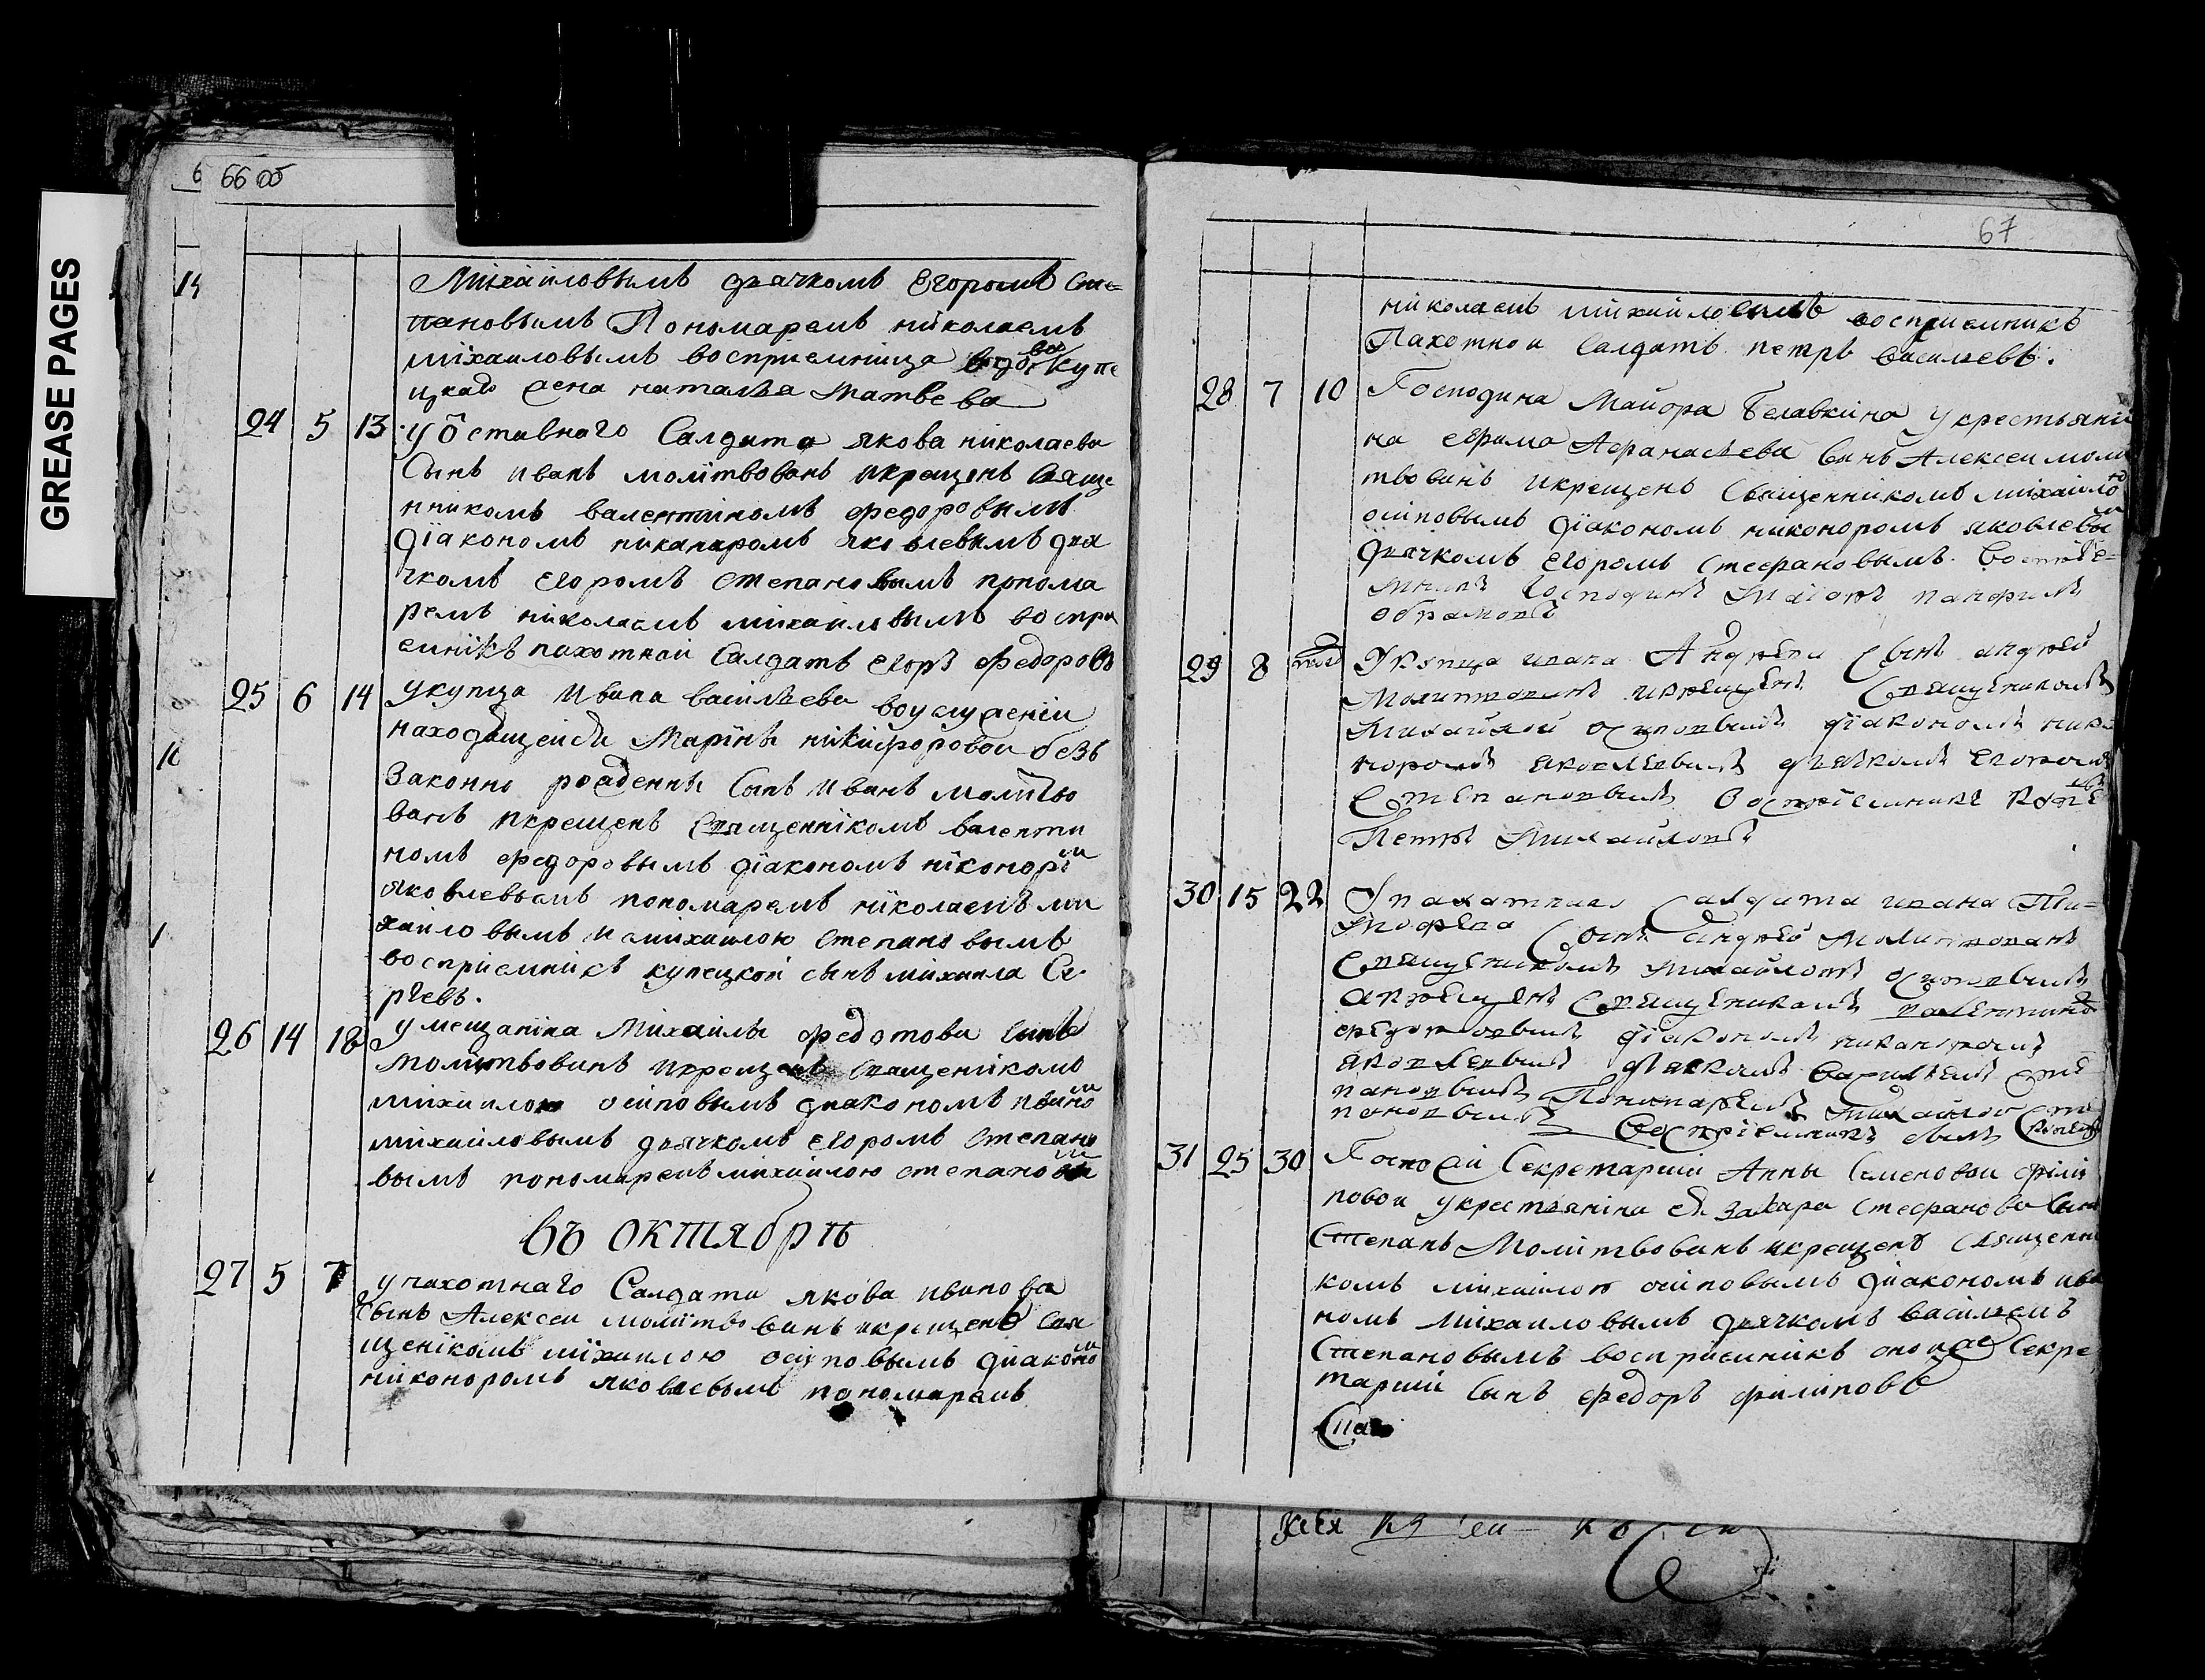 GREASE PAGES
66 об
14
Михаиловымъ дьячкомъ Егоромъ Сте=
пановымъ Пономаремъ николаемъ
михаиловымъ восприемница купе
цкаго жена наталья Матвева
24 5 13 у отставнаго Салдата якова николаева
Сынъ иванъ молитвованъ икрещенъ Свяще
нникомъ валентиномъ федоровымъ
диакономъ никаноромъ яковлевымъ дья
чкомъ Егоромъ степановымъ понома
ремъ николаемъ михаиловымъ воспри
емникъ пахотной Салдатъ Егоръ федоровъ
25 6 14 укупца ивана васильева воуслужении
находящейся Марины никифоровои безъ
законно рожденны сынъ иванъ молитво
ванъ икрещенъ Священникомъ валенти
номъ федоровымъ диакономъ никоноромъ
яковлевымъ пономаремъ николаемъ ми
хаиловымъ и михаилою степановымъ
восприемникъ купецкой сынъ михаила Се
ргевъ.
26 14 18 умещанина Михаилы федотова сынъ
молитвованъ икрещенъ священикомъ
михаилою осиповымъ диакономъ иваномъ
михаиловымъ дьячкомъ егоромъ степано
вымъ пономаремъ михаилою степановым
въ октябрѣ
27 5 7 упахотнаго Салдата якова иванова
Сынъ Алексеи молитвованъ икрещенъ Свя
щеникомъ михаилою осиповымъ диакономъ
никоноромъ яковлевымъ пономаремъ
67
николаемъ михаиловымъ восприемникъ
Пахотнои Салдатъ петръ васильевъ.
28 7 10 Господина Майора Белавкина укрестьяни
на ефима Афанасьева Сынъ Алексеи моли
твованъ икрещенъ Священникомъ михаилою
осиповымъ диакономъ никоноромъ яковлевым
дьячкомъ Егоромъ Стефановымъ. Восприе=
мникъ Господинъ Маиоръ панфилъ
обрамовъ
29 8 Укупца ивана Андреева Сынъ андрей
Молитвованъ икрещенъ Священикомъ
Михайлой осиповымъ диакономъ ника
норомъ яковлевымъ дьячкомъ Егоромъ
Степановымъ Восприемникъ купец
Петръ Михайловъ
30 15 22 Упахатнаго Салдата ивана Ти=
мофева Сынъ Андрей Молитвованъ
Священикомъ Михайломъ осиповымъ
акрещенъ Священикамъ валентиномъ
федоровымъ диакономъ никаноромъ
яковлевымъ дьячкомъ Васильемъ Сте
пановымъ Пономаремъ Михайлою сте
пановымъ Восприемникъ былъ
31 25 30 Госпожи Секретарши Анны Семеновои фили
повои укрестьянина ея Захара Стефанова Сынъ
Степанъ Молитвованъ икрещенъ священни
комъ михаилою осиповымъ диакономъ ива
номъ Михаиловымъ дьячкомъ васильемъ
Степановымъ восприемникъ оной же Секре
тарши Сынъ федоръ филиповъ